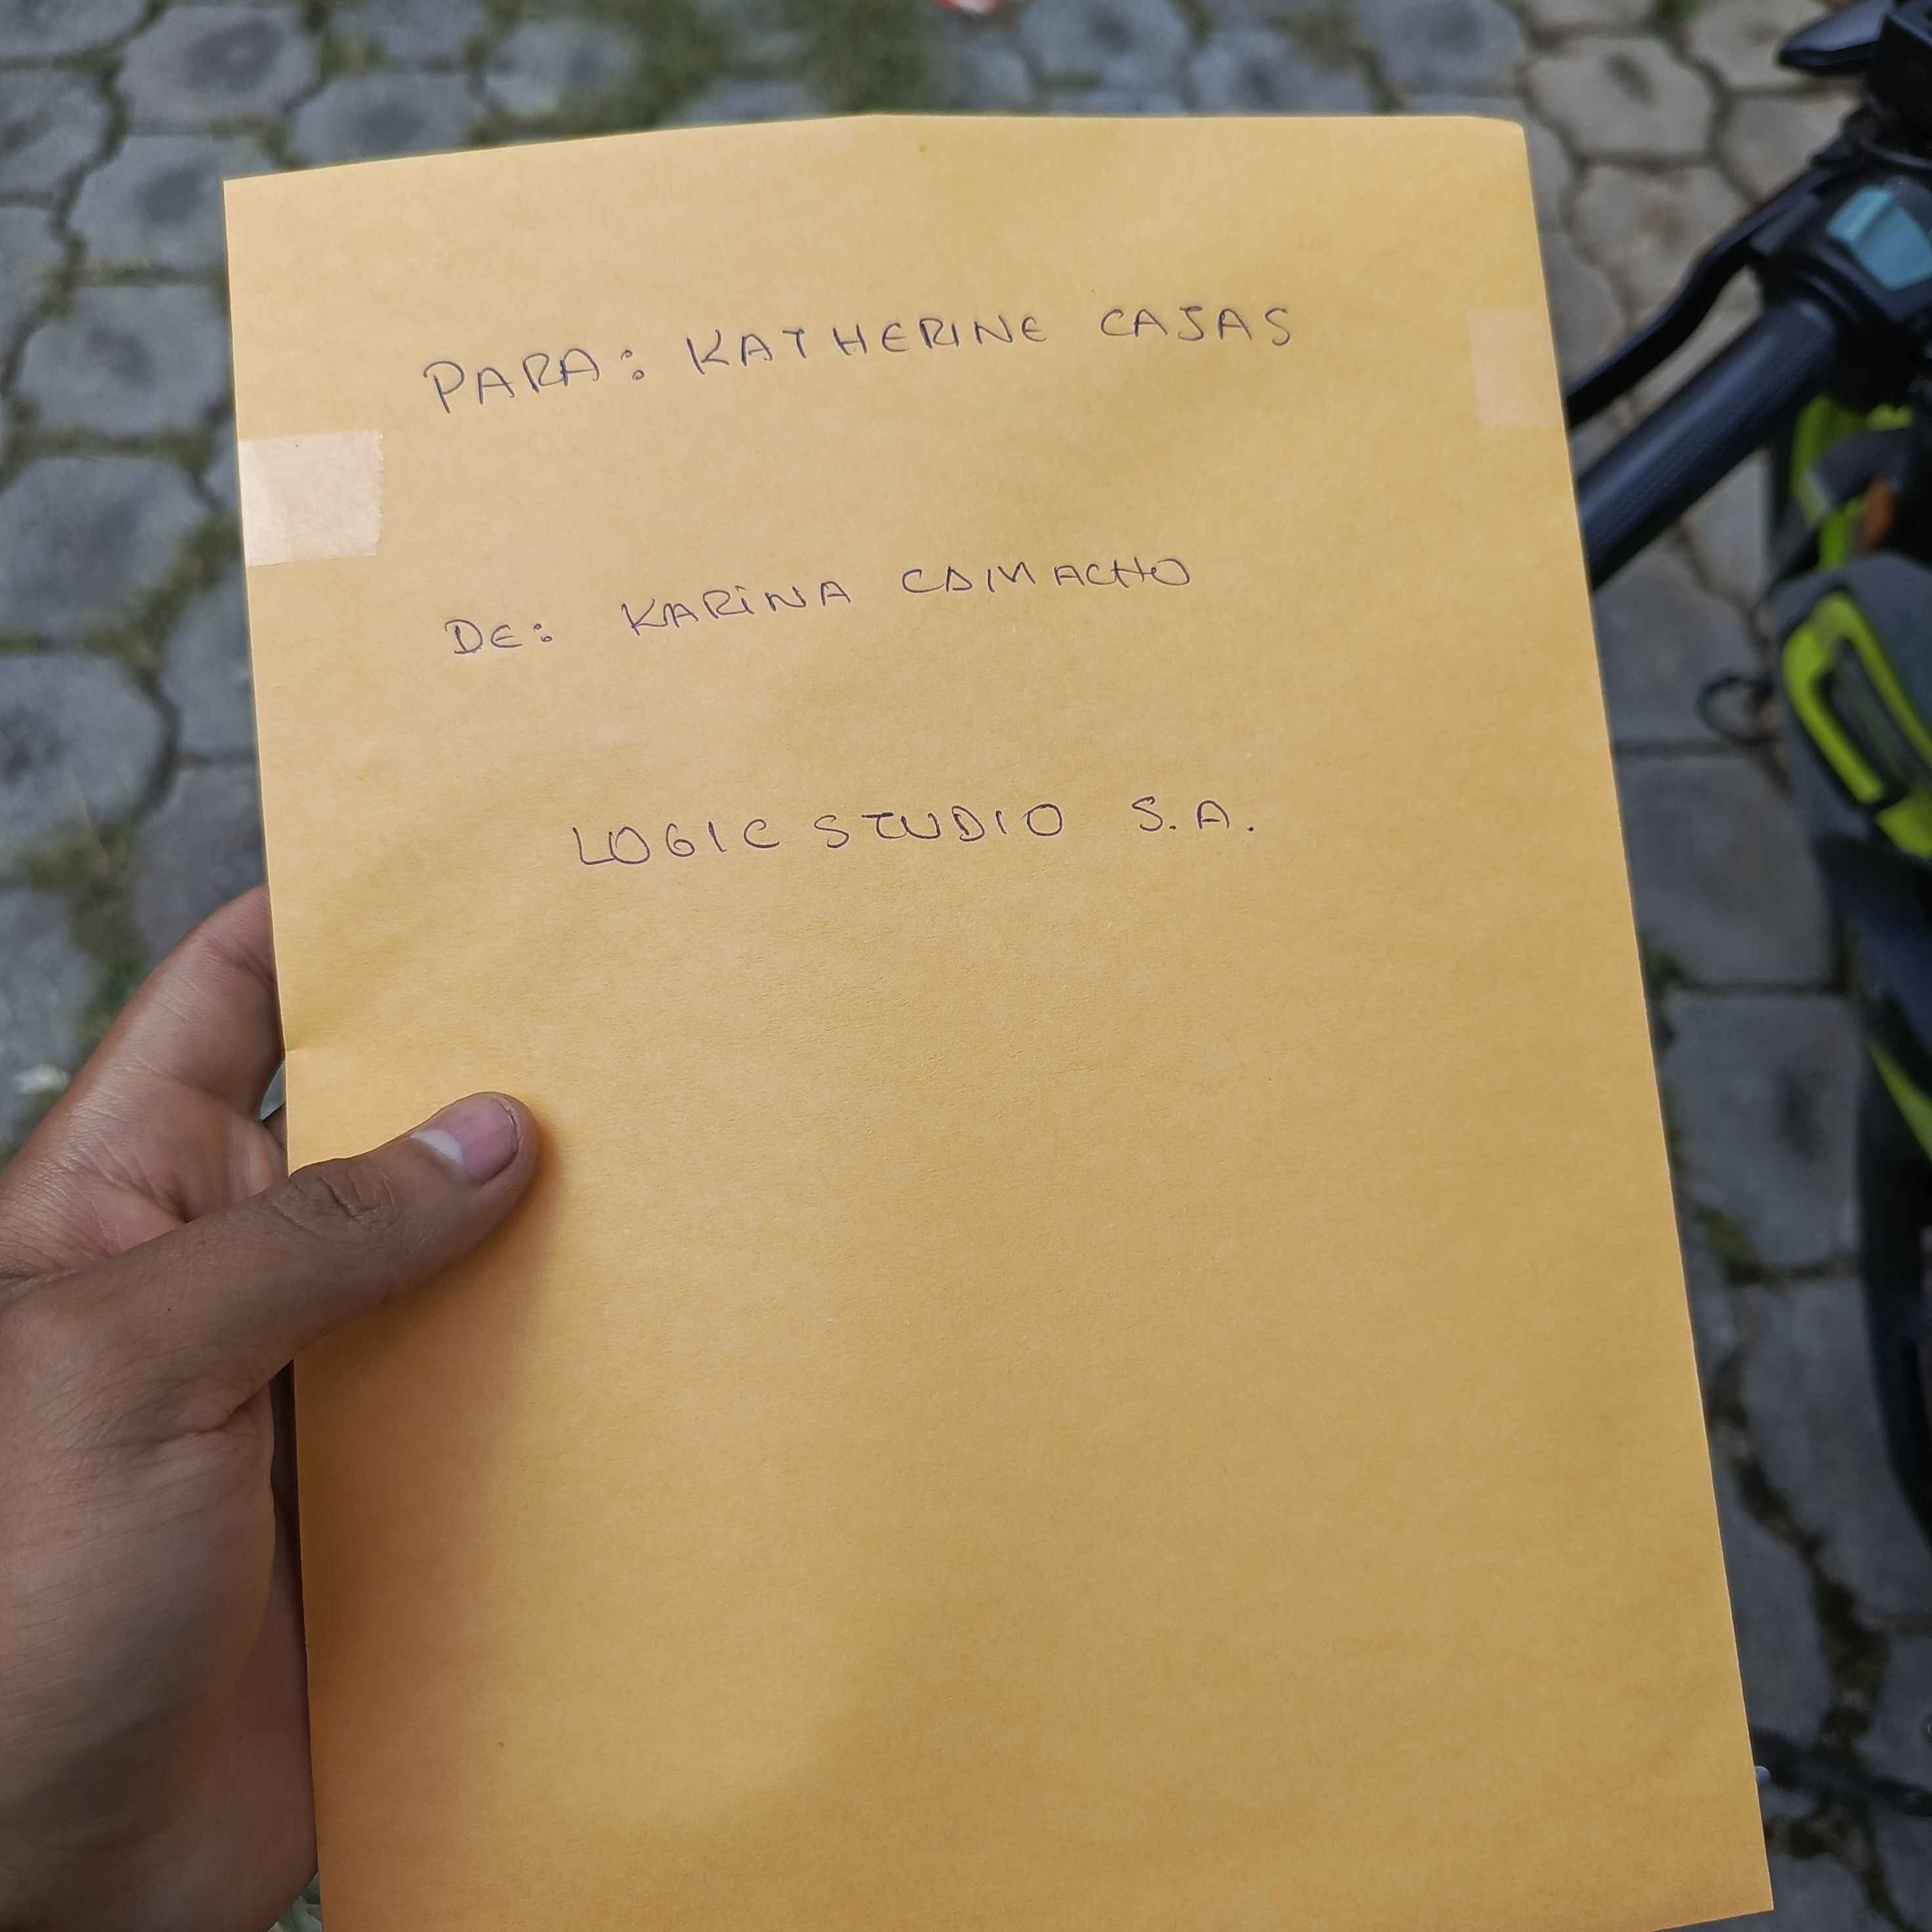 PARA: KATHERINE CAJAS
DE: KARINA CAMACHO
LOGIC STUDIO S.A.